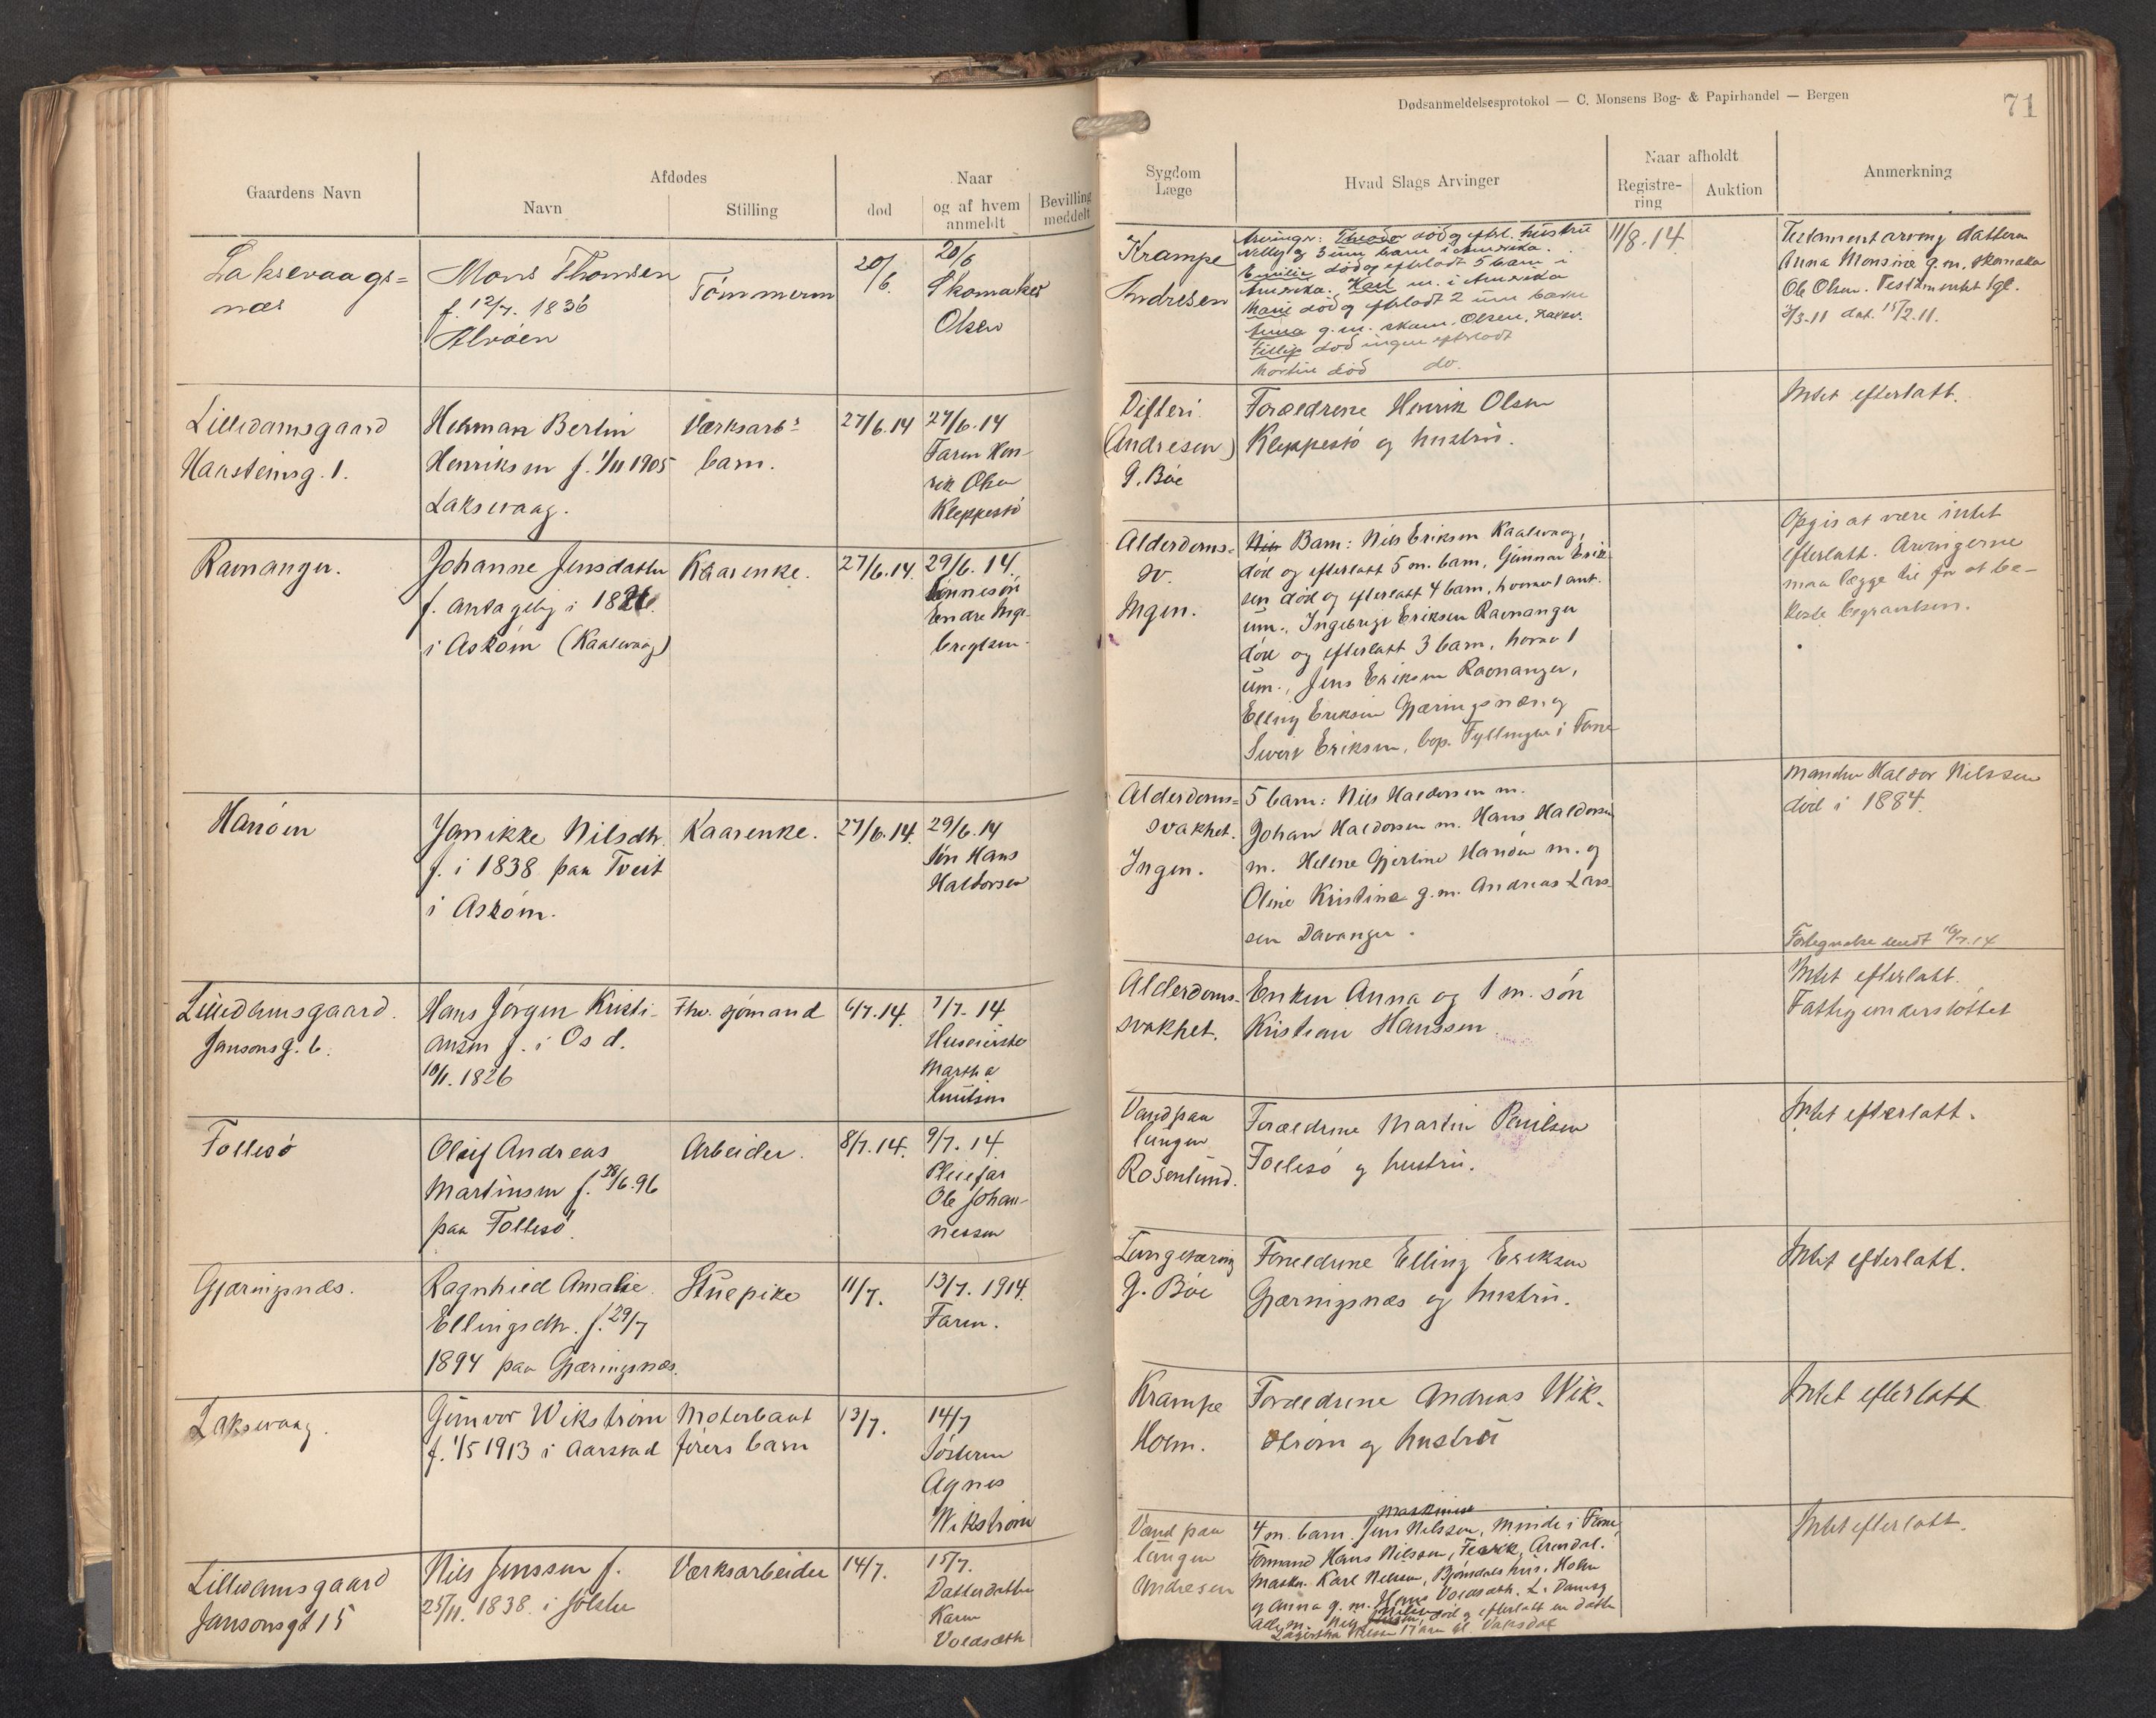 Dødsanmeldelsesprotokol — C. Monsens Bog- & Papirhandel — Bergen
71
Gaardens Navn
Afdødes
Navn
Stilling
død
Naar
og af hvem
anmeldt
Bevilling
meddelt
Sygdom
Læge
Hvad Slags Arvinger
Naar afholdt
Registre-
ring
Auktion
Anmerkning
Laksevaags=
nes
Mons Thomsen
f. 12/7. 1836
Alvøen
Tømmerm
20/
6.
20/6
Skomaker
Olsen
Krampe
Andresen
Arvinger: Theodor død og efterl. hustru
Nelly og 3 um. barn i Amerika.
Emilie død og efterladt 5 barn i
Amerika. Karl m. i Amerika
Marie død og efterladt 2 um barn
Anna g.m. skom. Olsen, Laksv.
Fillip død ingen efterladt
Martin død do.
11/8.14
Testamentarving datteren
Anna Monsine g.m. skomaker
Ole Olsen. Testamentet tgl.
3/3-11 dat. 15/2.11.
Lilledamsgaard
Haasteinsg. 1.
Herman Bertin
Henriksen f. 1/11 1905
Laksevaag.
Værksarbs
barn.
27/6.14
27/6.14
Faren Hen-
rik Olsen
Kleppestø
Difteri
(Andresen)
G. Bøe
Forældrene Henrik Olsen
Kleppestø og hustru.
Intet efterlatt.
Ravnanger.
Johanne Jensdatter
f. antagelig i 1826
i Askøen (Kaalvaag)
Kaarenke.
27/6.14.
29/6.14.
Sønnesøn
Endre Inge-
brigtsen.
Alderdoms=
sv.
Ingen.
Nils Barn: Nils Eriksen Kaalvaag,
død og efterlatt 5 m. barn, Gunnar Erik-
sen død og efterlatt 4 barn, hvorav 1 ant.
um., Ingebrigt Eriksen Ravnanger
død og efterlatt 3 barn, hvorav 1
um., Jens Eriksen Ravnanger,
Elling Eriksen Gjæringsnæs og
Sivert Eriksen, bop. Fyllingen i Fane
Opgis at være intet
efterlatt. Arvingerne
maa lægge til for at be-
koste begravelsen.
Hanøen
Jannikke Nilsdtr.
f. i 1838 paa Tveit
i Askøen.
Kaarenke.
27/6.14.
29/6.14
Søn Hans
Haldorsen
Alderdoms=
svakhet.
Ingen.
5 barn: Nils Haldorsen m.
Johan Haldorsen m. Hans Haldorsen
m. Helene Gjertine Hanøen m. og
Oline Kristine g.m. Andreas Lars-
sen Davanger.
Manden Haldor Nilssen
død i 1884.
Fortegnelse sendt 16/7.14
Lilledamsgaard.
Jansonsg. 6.
Hans Jørgen Kristi-
ansen f. i Os d.
10/1. 1826
Fhv. sjømand
6/7.14.
7/7. 14
Huseierske
Martha
Knutsen
Alderdoms-
svakhet.
Enken Anna og 1 m. søn
Kristian Hanssen.
Intet efterlatt.
Fattigunderstøttet
Follesø
Oluf Andreas
Martinsen f. 28/6.96
paa Follesø.
Arbeider.
8/7.14.
9/7.14.
Pleiefar
Ole Johan-
nessen
Vand paa
lungen
Rosenlund.
Forældrene Martin Paulsen
Follesø og hustru.
Intet efterlatt.
Gjæringsnæs.
Ragnhild Amalie
Ellingsdtr. f. 29/7
1894 paa Gjæringsnæs.
Stuepike
11/7.
13/7. 1914.
Faren.
Lungetæring
G. Bøe
Forældrene Elling Eriksen
Gjæringsnæs og hustru.
Intet efterlatt.
Laksevaag.
Gunvor Wikstrøm
f. 1/5 1913 i Aarstad
Motorbaat
førers barn
13/7.
14/7
Søsteren
Agnes
Wikstrøm
Krampe
Holm.
Forældrene Andreas Wik-
strøm og hustru
Intet efterlatt
Lilledamsgaard
Jansonsgt 15
Nils Jenssen f.
25/11. 1838. i Jølster
Værksarbeider
14/7.
15/7.
Datterdatter
Karen
Voldsæth
Vand paa
lungen
Andresen
Maskinist
4 m. barn. Jens Nilssen, Minde i Fane,
Formand Hans Nilssen, Arendal.
Maskn. Karl Nilssen, Bjørndals hus, Holen
og Anna g.m. Voldsæth. L. Damsg
død og efterlatt en datter
Nilssen 17 aar Vaksdal
Intet efterlatt.